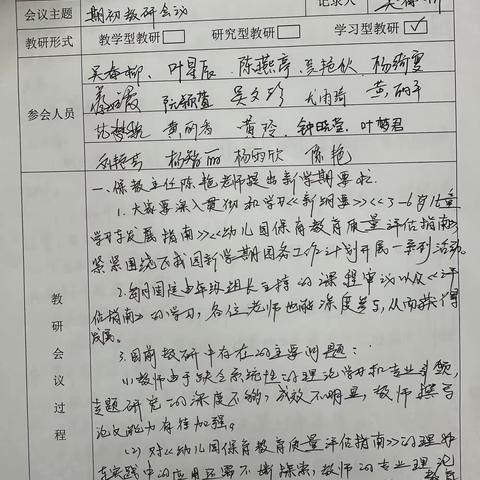 会议主题 期初教研会议 记录人
教研形式 教学型教研□ 研究型教研□ 学习型教研☑
参会人员
吴春柳、叶星辰、陈燕亭、吴艳钦、杨绮雯
阮颖萱 吴文珍 尤雨琦 黄丽平
黄丽香 黄玲 钟晓莹、叶梦君
杨丽 杨雨欣 陈艳
教研会议过程
一、保教主任陈艳老师提出新学期要求。
1.大家要深入贯彻和学习《新纲要》《3-6岁儿童
学习与发展指南》《幼儿园保育教育质量评估指南》
紧紧围绕我园新学期园务工作计划开展一系列活动。
2.每周固定由年级组长主持的课程审议以及《评
估指南》的学习,各位老师也能深度参与,从而获得
发展。
3.目前教研中存在的主要问题:
(1)教师由于缺乏系统性的理论学习和专业引领,
专题研究的深度不够,成效不明显,教师撰写
论文能力有待加强。
(2)对《幼儿园保育教育质量评估指南》的理解
在实践中的应用还要不断探索,教师的专业理论